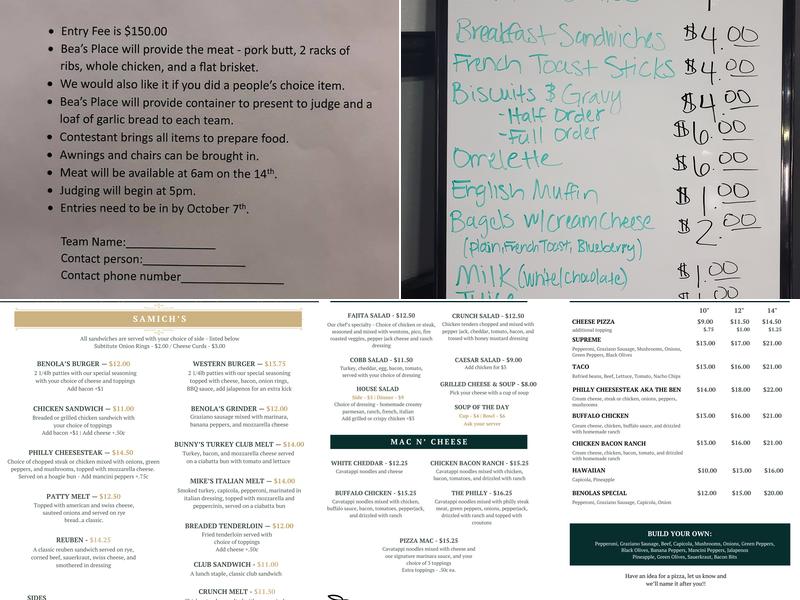 Entry Fee is $150.00
Bea's Place will provide the meat - pork butt, 2 racks of
ribs, whole chicken, and a flat brisket.
We would also like it if you did a people's choice item.
Bea's Place will provide container to present to judge and a
loaf of garlic bread to each team.
Contestant brings all items to prepare food.
Awnings and chairs can be brought in.
Meat will be available at 6am on the 14th.
Judging will begin at 5pm.
Entries need to be in by October 7th.
Team Name:
Contact person:
Contact phone number
Breakfast Sandwiches $4.00
French Toast Sticks $4.00
Biscuits & Gravy
-Half Order $4.00
-Full Order $6.00
Omelette $6.00
English Muffin $1.00
Bagels w/CreamCheese $2.00
(plain, French Toast, Blueberry)
Milk (white/chocolate) $1.00
SAMICH'S
All sandwiches are served with your choice of side - listed below
Substitute Onion Rings - $2.00 / Cheese Curds - $3.00
BENOLA'S BURGER — $12.00
2 1/4lb patties with our special seasoning
with your choice of cheese and toppings
Add bacon +$1
CHICKEN SANDWICH — $11.00
Breaded or grilled chicken sandwich with
your choice of toppings
Add bacon +$1 | Add cheese +.50c
PHILLY CHEESESTEAK — $14.50
Choice of chopped steak or chicken mixed with onions, green
peppers, and mushrooms, topped with mozzarella cheese.
Served on a hoagie bun - Add mancini peppers +.75c
PATTY MELT — $12.50
Topped with american and swiss cheese,
sauteed onions and served on rye
bread..a classic.
REUBEN - $14.25
A classic reuben sandwich served on rye,
corned beef, sauerkraut, swiss cheese, and
smothered in dressing
SIDES
WESTERN BURGER — $13.75
2 1/4lb patties with our special seasoning
topped with cheese, bacon, onion rings,
BBQ sauce, add jalapenos for an extra kick
BENOLA'S GRINDER — $12.00
Graziano sausage mixed with marinara,
banana peppers, and mozzarella cheese
BUNNY'S TURKEY CLUB MELT — $14.00
Turkey, bacon, and mozzarella cheese served
on a ciabatta bun with tomato and lettuce
MIKE'S ITALIAN MELT — $14.00
Smoked turkey, capicola, pepperoni, marinated in
italian dressing, topped with mozzarella and
pepperncinis, served on a ciabatta bun
BREADED TENDERLOIN — $12.00
Fried tenderloin served with
choice of toppings
Add cheese +.50c
CLUB SANDWICH — $11.00
A lunch staple, classic club sandwich
CRUNCH MELT - $11.50
FAJITA SALAD - $12.50
Our chef's specialty - Choice of chicken or steak,
seasoned and mixed with wontons, pico, fire
roasted veggies, pepper jack cheese and ranch
dressing
COBB SALAD - $11.50
Turkey, cheddar, egg, bacon, tomato,
served with your choice of dressing
HOUSE SALAD
Side - $3 | Dinner - $9
Choice of dressing - homemade creamy
parmesan, ranch, french, italian
Add grilled or crispy chicken +$3
CRUNCH SALAD - $12.50
Chicken tenders chopped and mixed with
pepper jack, cheddar, tomato, bacon, and
tossed with honey mustard dressing
CAESAR SALAD - $9.00
Add chicken for $3
GRILLED CHEESE & SOUP - $8.00
Pick your cheese with a cup of soup
SOUP OF THE DAY
Cup - $4 | Bowl - $6
Ask your server
MAC N' CHEESE
WHITE CHEDDAR - $12.25
Cavatappi noodles and cheese
BUFFALO CHICKEN - $15.25
Cavatappi noodles mixed with chicken,
buffalo sauce, bacon, tomatoes, pepperjack,
and drizzled with ranch
CHICKEN BACON RANCH - $15.25
Cavatappi noodles mixed with chicken,
bacon, tomatoes, and drizzled with ranch
THE PHILLY - $16.25
Cavatappi noodles mixed with philly steak
meat, green peppers, onions, pepperjack,
and drizzled with ranch and topped with
croutons
PIZZA MAC - $15.25
Cavatappi noodles mixed with cheese and
our signature marinara sauce, and your
choice of 3 toppings
Extra toppings - .50c ea.
10" 12" 14"
CHEESE PIZZA $9.00 $11.50 $14.50
additional topping $.75 $1.00 $1.25
SUPREME $13.00 $17.00 $21.00
Pepperoni, Graziano Sausage, Mushrooms, Onions,
Green Peppers, Black Olives
TACO $13.00 $16.00 $21.00
Refried beans, Beef, Lettuce, Tomato, Nacho Chips
PHILLY CHEESESTEAK AKA THE BEN $14.00 $18.00 $22.00
Cream cheese, steak or chicken, onions, peppers,
mushrooms
BUFFALO CHICKEN $13.00 $16.00 $21.00
Cream cheese, chicken, buffalo sauce, and drizzled
with homemade ranch
CHICKEN BACON RANCH $13.00 $16.00 $21.00
Cream cheese, chicken, bacon, tomato, and drizzled
with homemade ranch
HAWAIIAN $10.00 $13.00 $16.00
Capicola, Pineapple
BENOLAS SPECIAL $12.00 $15.00 $20.00
Pepperoni, Graziano Sausage, Capicola, Onion
BUILD YOUR OWN:
Pepperoni, Graziano Sausage, Beef, Capicola, Mushrooms, Onions, Green Peppers,
Black Olives, Banana Peppers, Mancini Peppers, Jalapenos
Pineapple, Green Olives, Sauerkraut, Bacon Bits
Have an idea for a pizza, let us know and
we'll name it after you!!